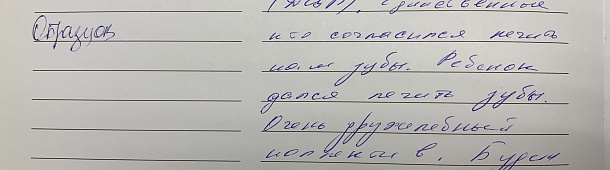 единственные
Образцов
кто согласился лечить
нам зубы. Ребенок
дался лечить зубы.
Очень дружелюбный
коллектив. Будем